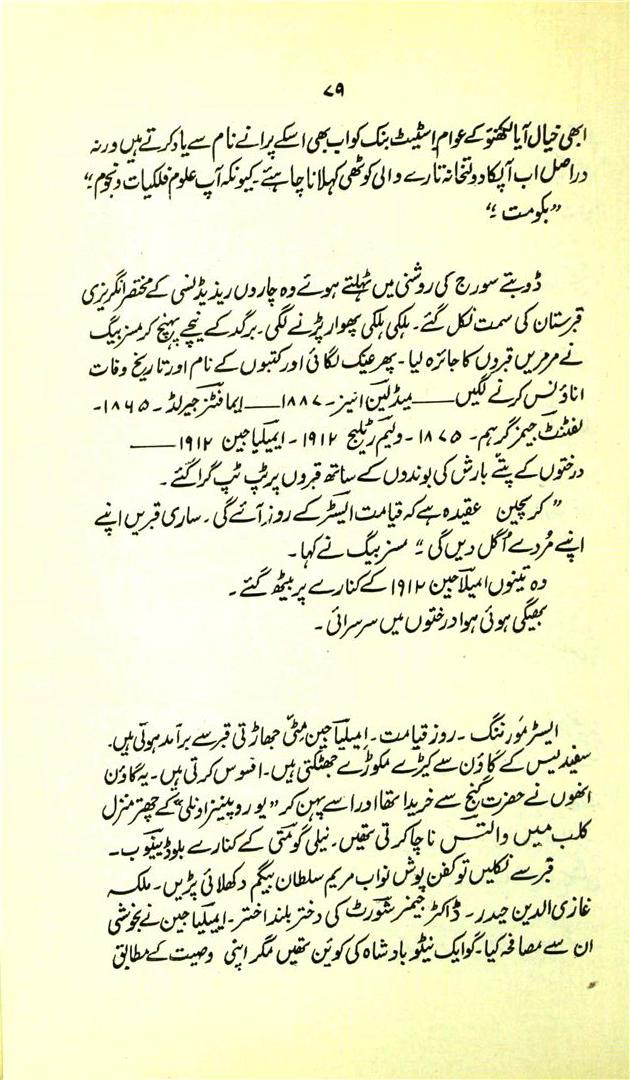 ۷۹
ابھی خیال آیا لکھنؤ کے عوام اسٹیٹ بنک کو اب بھی اسکے پرانے نام سے یاد کرتے ہیں ورنہ
دراصل اب آپکا دولتخانہ تارے والی کوٹھی کہلانا چاہئے۔ کیونکہ آپ علوم فلکیات و نجوم۔"
"بکومت ۔"
ڈوبتے سورج کی روشنی میں ٹہلتے ہوئے وہ چاروں ریذیڈنسی کے مختصر انگریزی
قبرستان کی سمت نکل گئے۔ ہلکی ہلکی پھوار پڑنے لگی۔ برگد کے نیچے پہنچ کر مسز بیگ
نے مرمریں قبروں کا جائزہ لیا۔ پھر عینک لگائی اور کتبوں کے نام اور تاریخ وفات
اناؤنس کرنے لگیں ــــــ میڈلین اینز۔ ۱۸۸۷ ــــــ ایما فٹنرجیرلڈ۔ ۱۸۶۵۔
لفٹننٹ جیمز گرہم۔ ۱۸۷۵۔ ولیم رٹلیج ۱۹۱۲۔ ایمیلیا جین ۱۹۱۲ ــــــ
درختوں کے پتے بارش کی بوندوں کے ساتھ قبروں پر ٹپ ٹپ گرا گئے۔
"کرسچین عقیدہ ہے کہ قیامت ایسٹر کے روز آئے گی۔ ساری قبریں اپنے
اپنے مُردے اُگل دیں گی۔" مسز بیگ نے کہا۔
وہ تینوں ایمیلیا جین ۱۹۱۲ کے کنارے پر بیٹھ گئے۔
بھیگی ہوئی ہوا درختوں میں سرسرائی۔
ایسٹر مَورننگ۔ روز قیامت۔ ایمیلیا جین مٹّی جھاڑتی قبر سے برآمد ہوتی ہیں۔
سفید لیس کے گاؤن سے کیڑے مکوڑے جھٹکتی ہیں۔ افسوس کرتی ہیں۔ یہ گاؤن
انھوں نے حضرت گنج سے خریدا تھا اور اسے پہن کر "یوروپینز اونلی" کے چھتر منزل
کلب میں والٹس ناچا کرتی تھیں۔ نیلی گومتی کے کنارے بلو ڈینیوب۔
قبر سے نکلیں تو کفن پوش نواب مریم سلطان بیگم دکھلائی پڑیں۔ ملکہ
غازی الدین حیدر۔ ڈاکٹر جیمز شورٹ کی دختر بلند اختر۔ ایمیلیا جین نے بخوشی
ان سے مصافحہ کیا۔ گو ایک نیٹو بادشاہ کی کوئین تھیں مگر اپنی وصیت کے مطابق